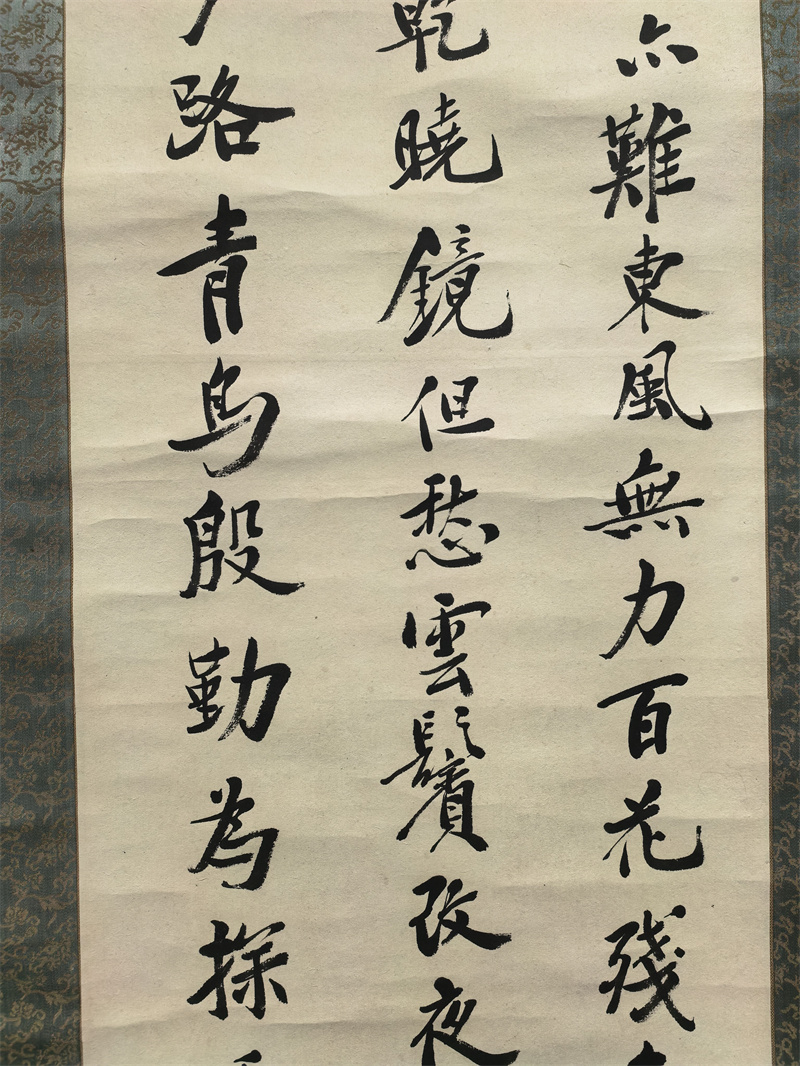 亦難東風無力百花殘
乾曉鏡但愁雲鬢改夜
路青鳥殷勤為探